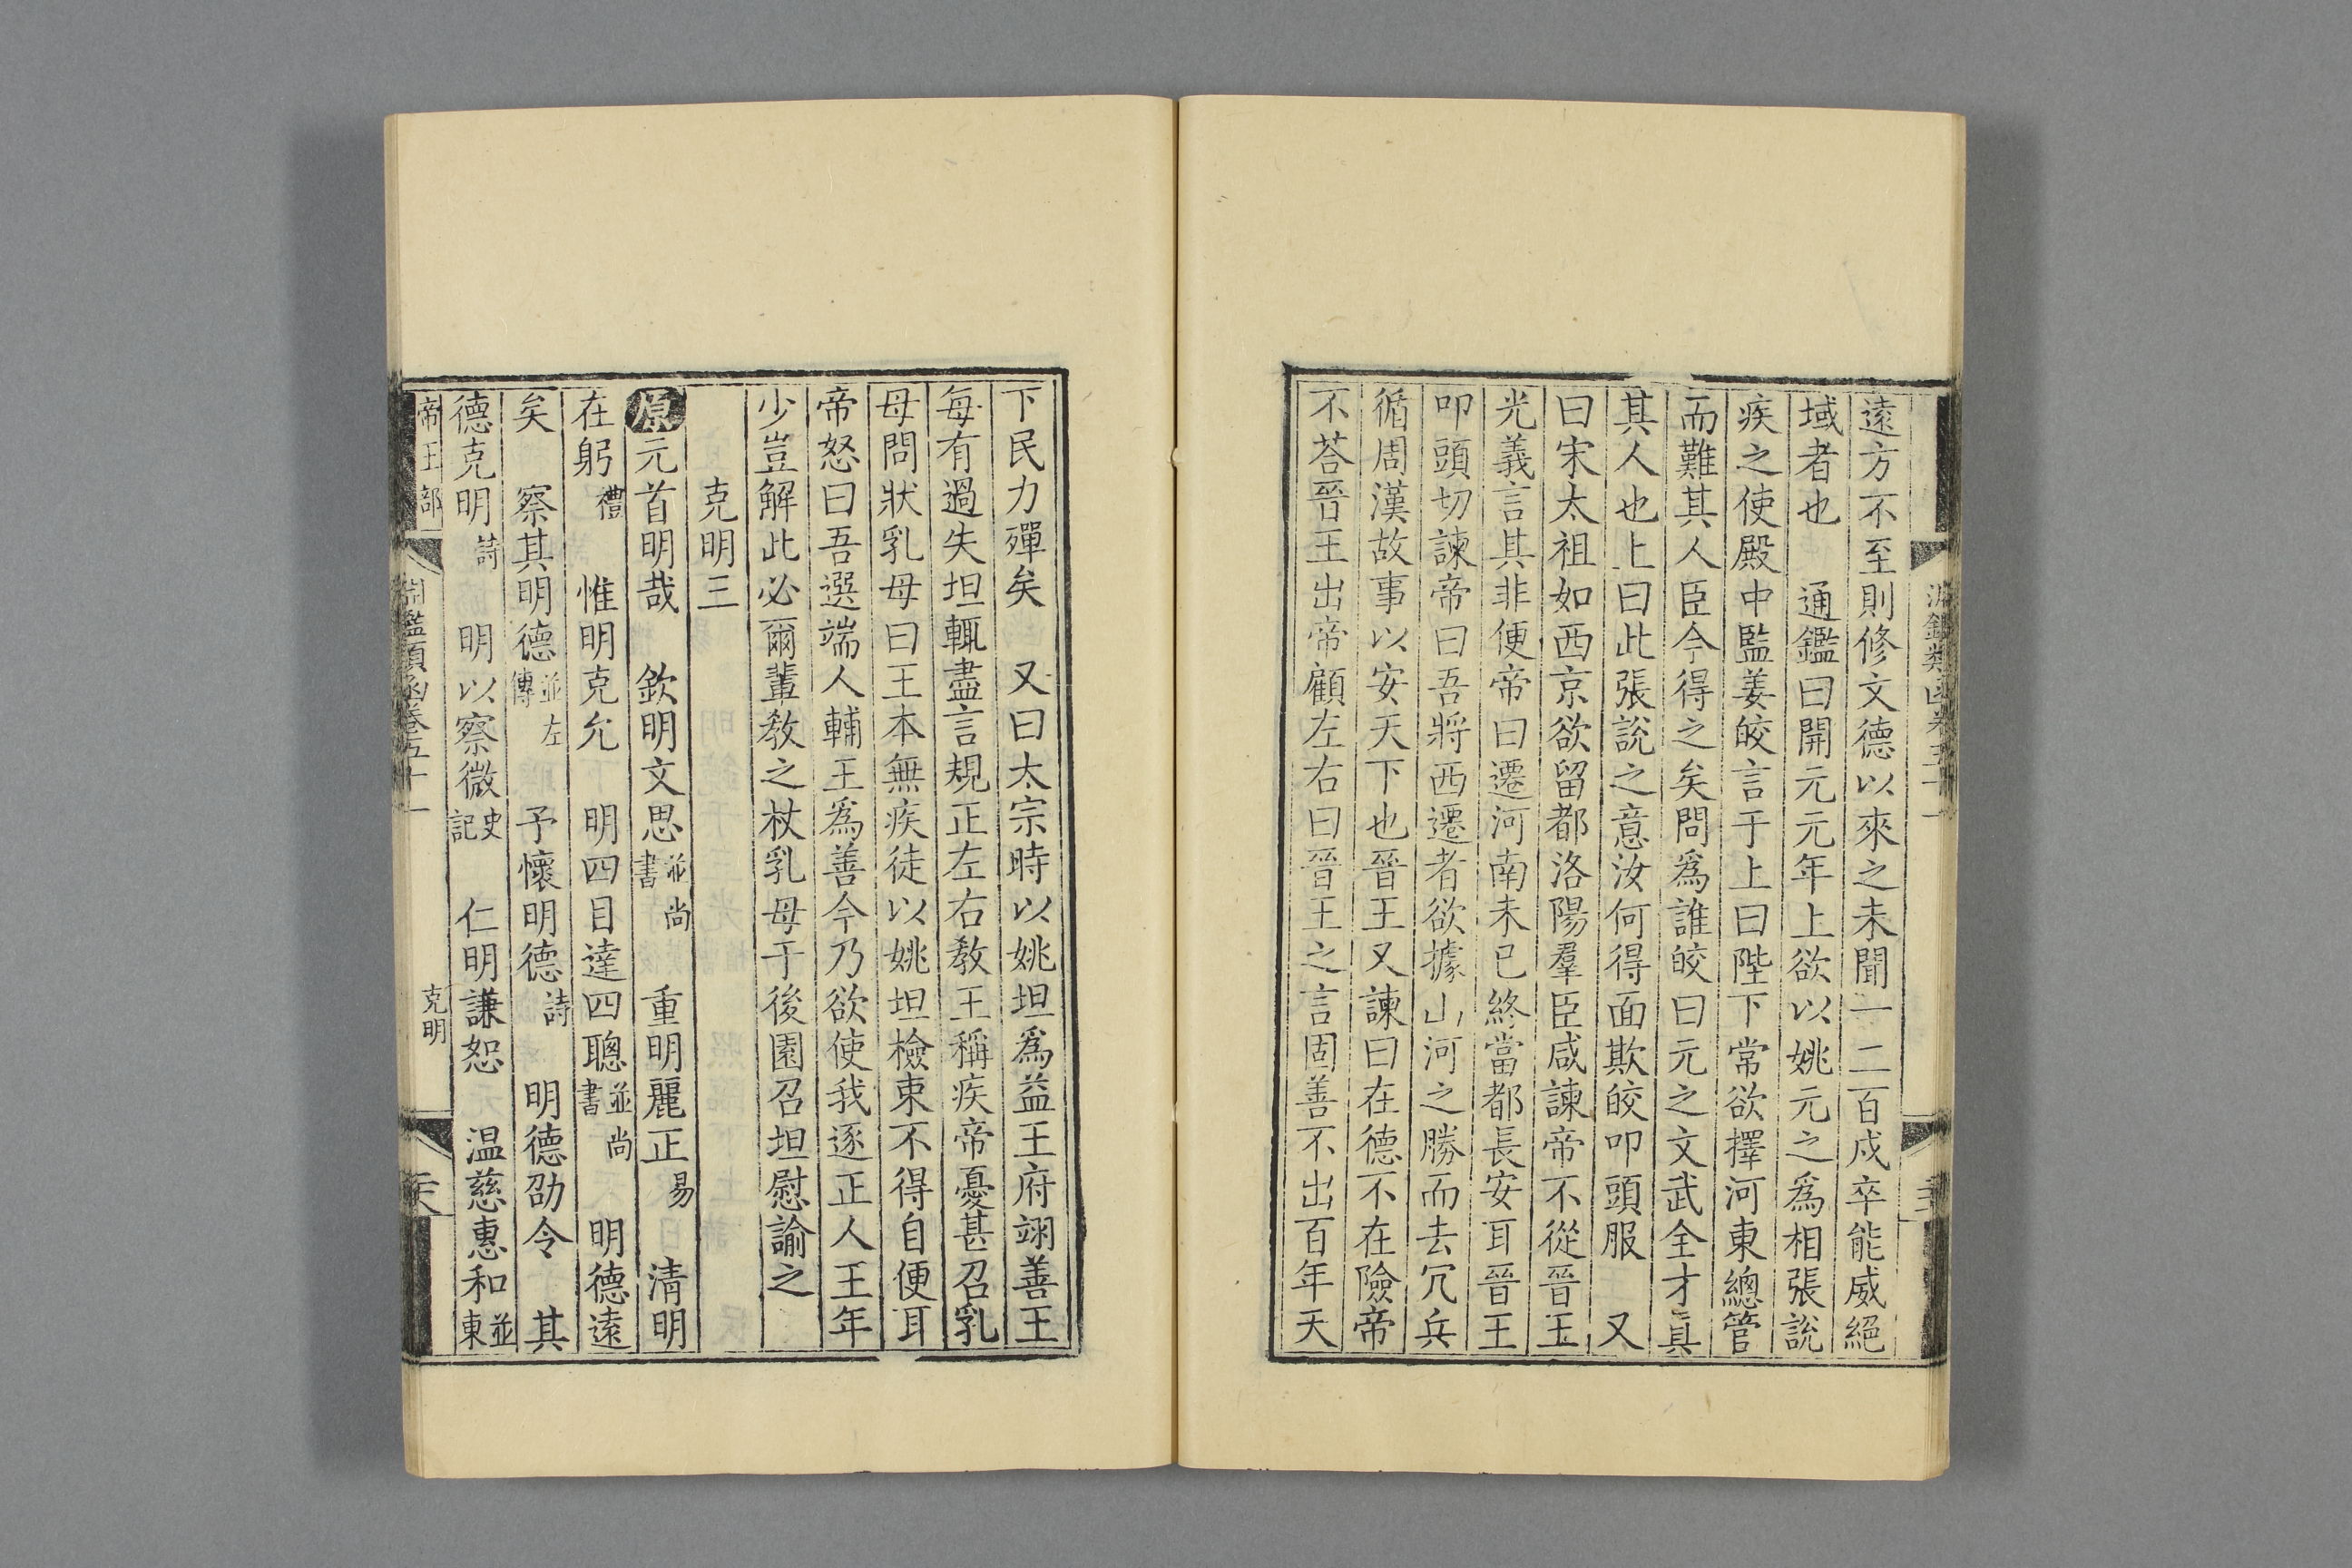 遠方不至則修文德以來之未聞一二百戍卒能威絕
域者也　通鑑曰開元元年上欲以姚元之為相張說
疾之使殿中監姜皎言于上曰陛下常欲擇河東總管
而難其人臣今得之矣問爲誰皎曰元之文武全才眞
其人也上曰此張說之意汝何得面欺皎叩頭服　又
曰宋太祖如西京欲留都洛陽羣臣咸諫帝不從晉王
光義言其非便帝曰遷河南未已終當都長安耳晉王
叩頭切諫帝曰吾將西遷者欲據山河之勝而去冗兵
循周漢故事以安天下也晉王又諫曰在德不在險帝
不荅晉王出帝顧左右曰晉王之言固善不出百年天
下民力殫矣　又曰太宗時以姚坦爲益王府翊善王
每有過失坦輒盡言規正左右教王稱疾帝憂甚召乳
母問狀乳母曰王本無疾徒以姚坦檢束不得自便耳
帝怒曰吾選端人輔王爲善今乃欲使我逐正人王年
少豈解此必爾輩教之杖乳母于後園召坦慰諭之
克明三
原元首明哉　欽明文思並尚書　重明麗正易　清明
在躬禮　惟明克允　明四目達四聰並尚書　明德遠
矣　察其明德並左傳　予懷明德詩　明德劭令　其
德克明詩　明以察微史記　仁明謙恕　温慈惠和並東
帝王部　淵鑑類函卷五十一　克明